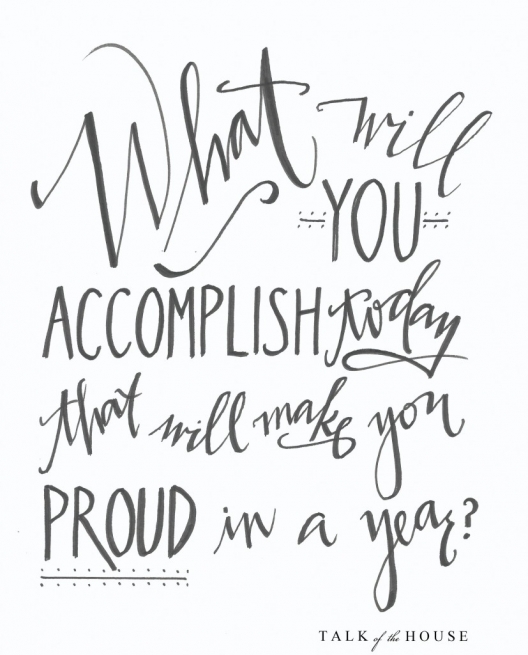 What will
YOU
ACCOMPLISH today
that will make you
PROUD in a year?
TALK of the HOUSE